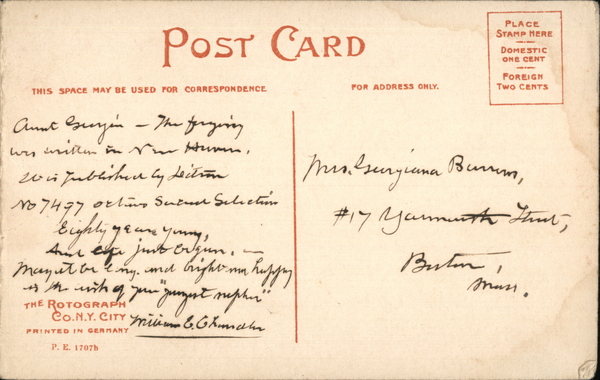 POST CARD
PLACE
STAMP HERE
DOMESTIC
ONE CENT
FOREIGN
TWO CENTS
THIS SPACE MAY BE USED FOR CORRESPONDENCE
FOR ADDRESS ONLY.
Aunt Georgia — The
was written in New Haven.
is published by
No 7497 Sacred Selection
Eighty years young,
And life just begun. —
May it be long and bright and happy
is the wish of your "youngest nephew"
William E. Chandler
Mrs. Georgiana Burrows,
#17 Yarmouth Street,
Boston,
Mass.
THE ROTOGRAPH
CO. N.Y. CITY
PRINTED IN GERMANY
P. E. 1707b